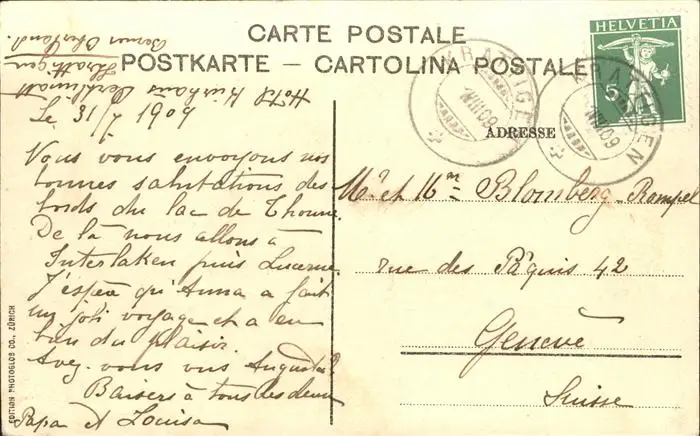 CARTE POSTALE
POSTKARTE – CARTOLINA POSTALE
HELVETIA
5
KRATTIGEN
1 VIII 09
KRATTIGEN
1 VIII 09
ADRESSE
Hôtel Kurhaus
Krattigen
Berner Oberland.
Le 31/7 1909
Vous vous envoyons nos
bonnes salutations des
bords du lac de Thoune.
De là nous allons à
Interlaken puis Lucerne.
J'espère qu'Anna a fait
un joli voyage et a eu
bien du plaisir.
Avez-vous vus Augusta?
Baisers à tous les deux
Papa et Louisa
Mr et Mme Blomberg-Rampel
rue des Pâquis 42
Genève
Suisse
EDITION PHOTOGLOB CO., ZÜRICH